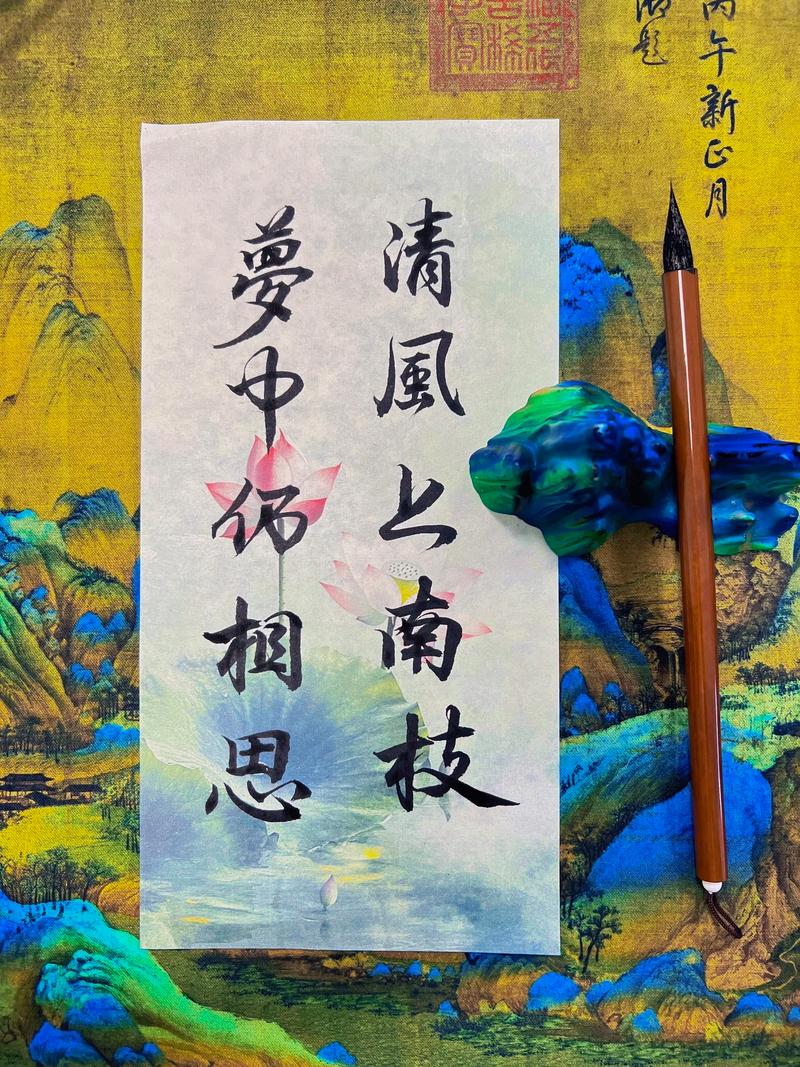 清風上南枝
夢中仍相思
丙午新正月
御題